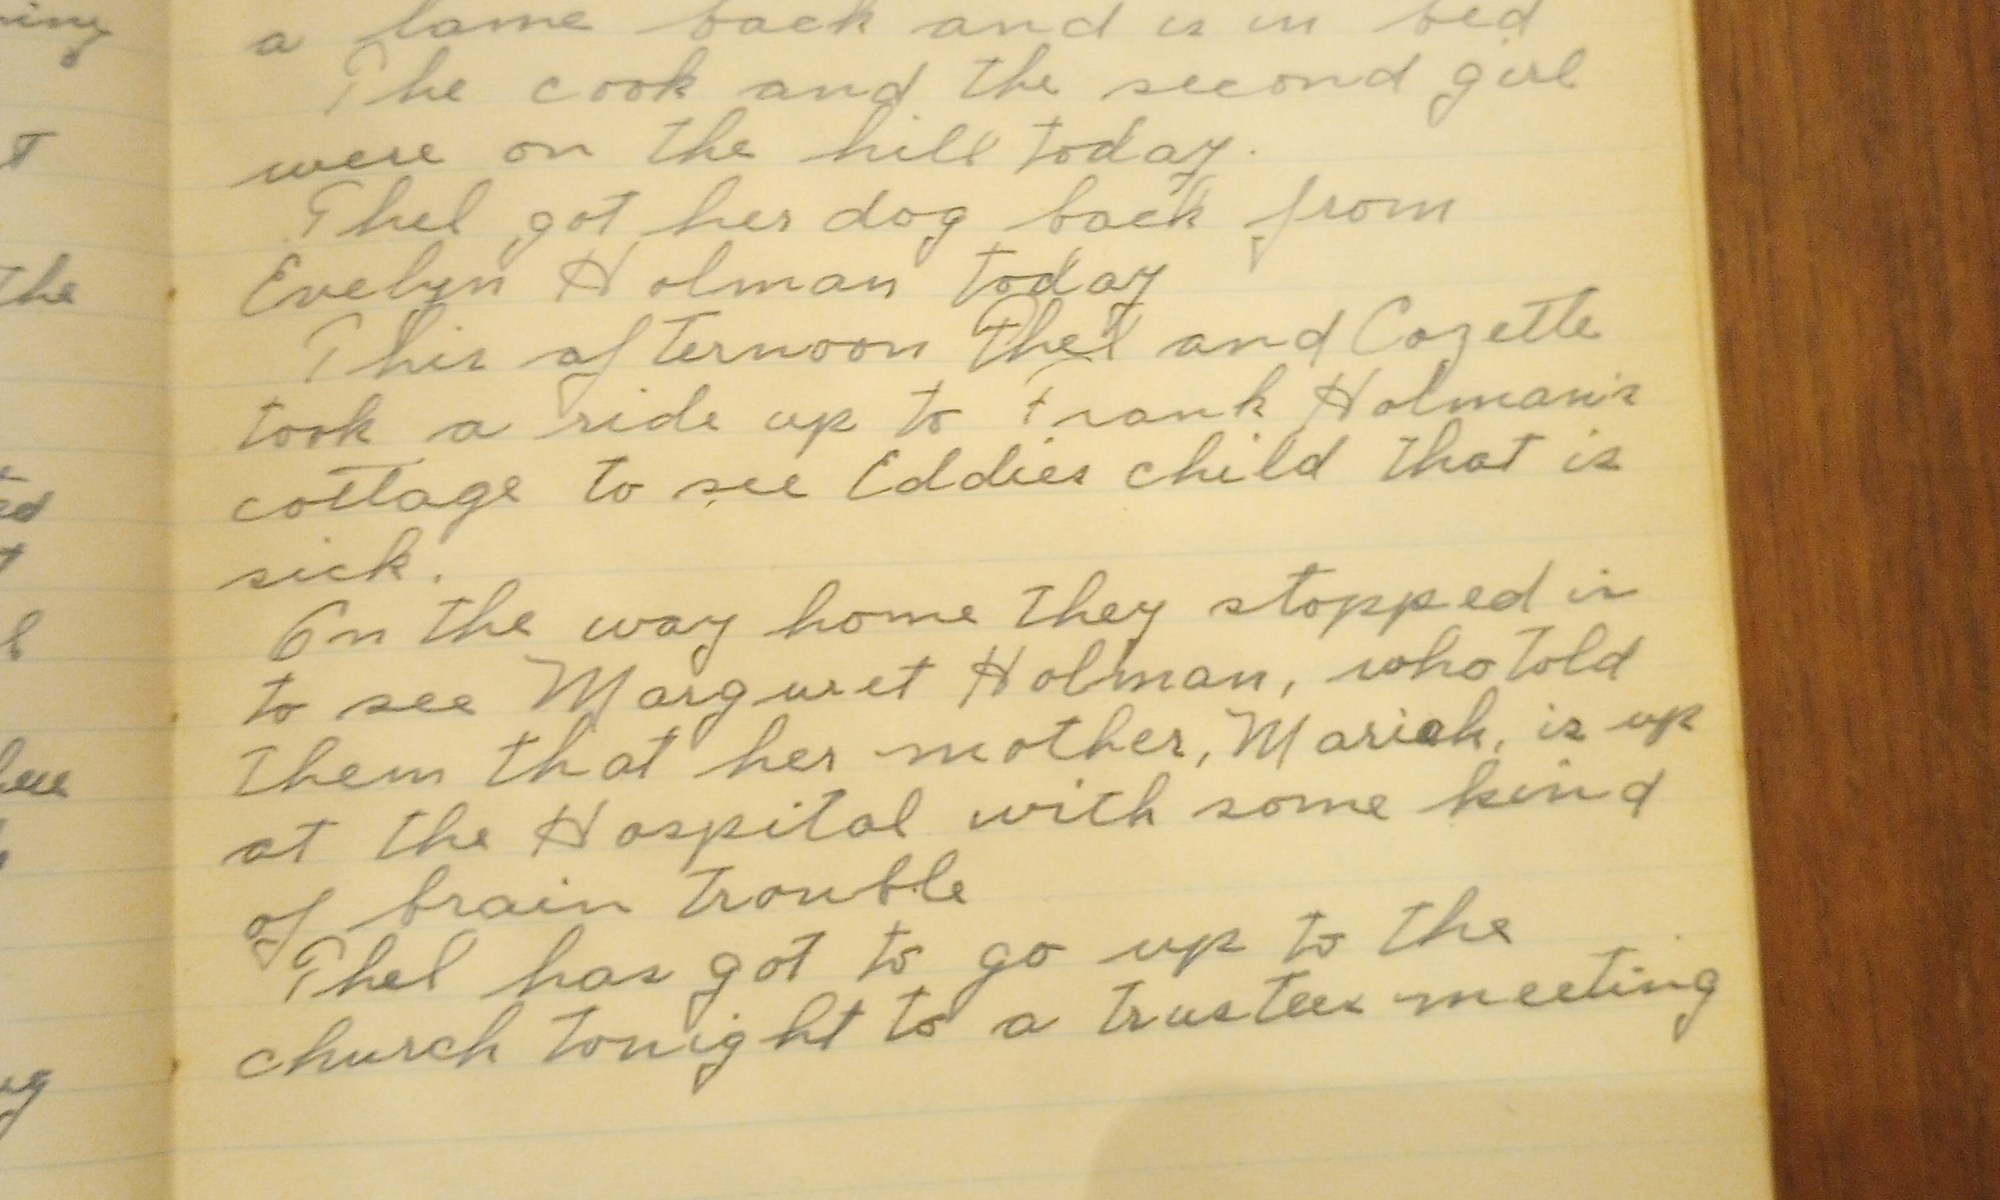 a lame back and is in bed
The cook and the second girl
were on the hill today.
Thel got her dog back from
Evelyn Holman today
This afternoon Thel and Cozette
took a ride up to Frank Holman's
cottage to see Eddies child that is
sick.
On the way home they stopped in
to see Marguret Holman, who told
them that her mother, Mariah, is up
at the Hospital with some kind
of brain trouble
Thel has got to go up to the
church tonight to a trustees meeting
the